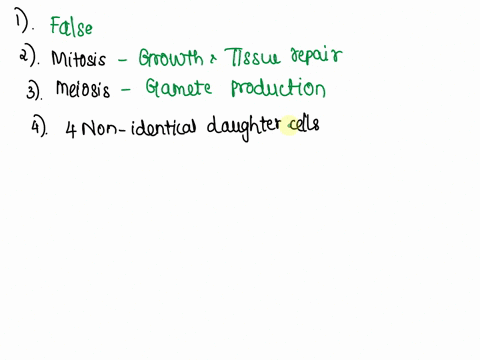 1). False
2). Mitosis - Growth & Tissue repair
3). Meiosis - Gamete production
4). 4 Non-identical daughter cells